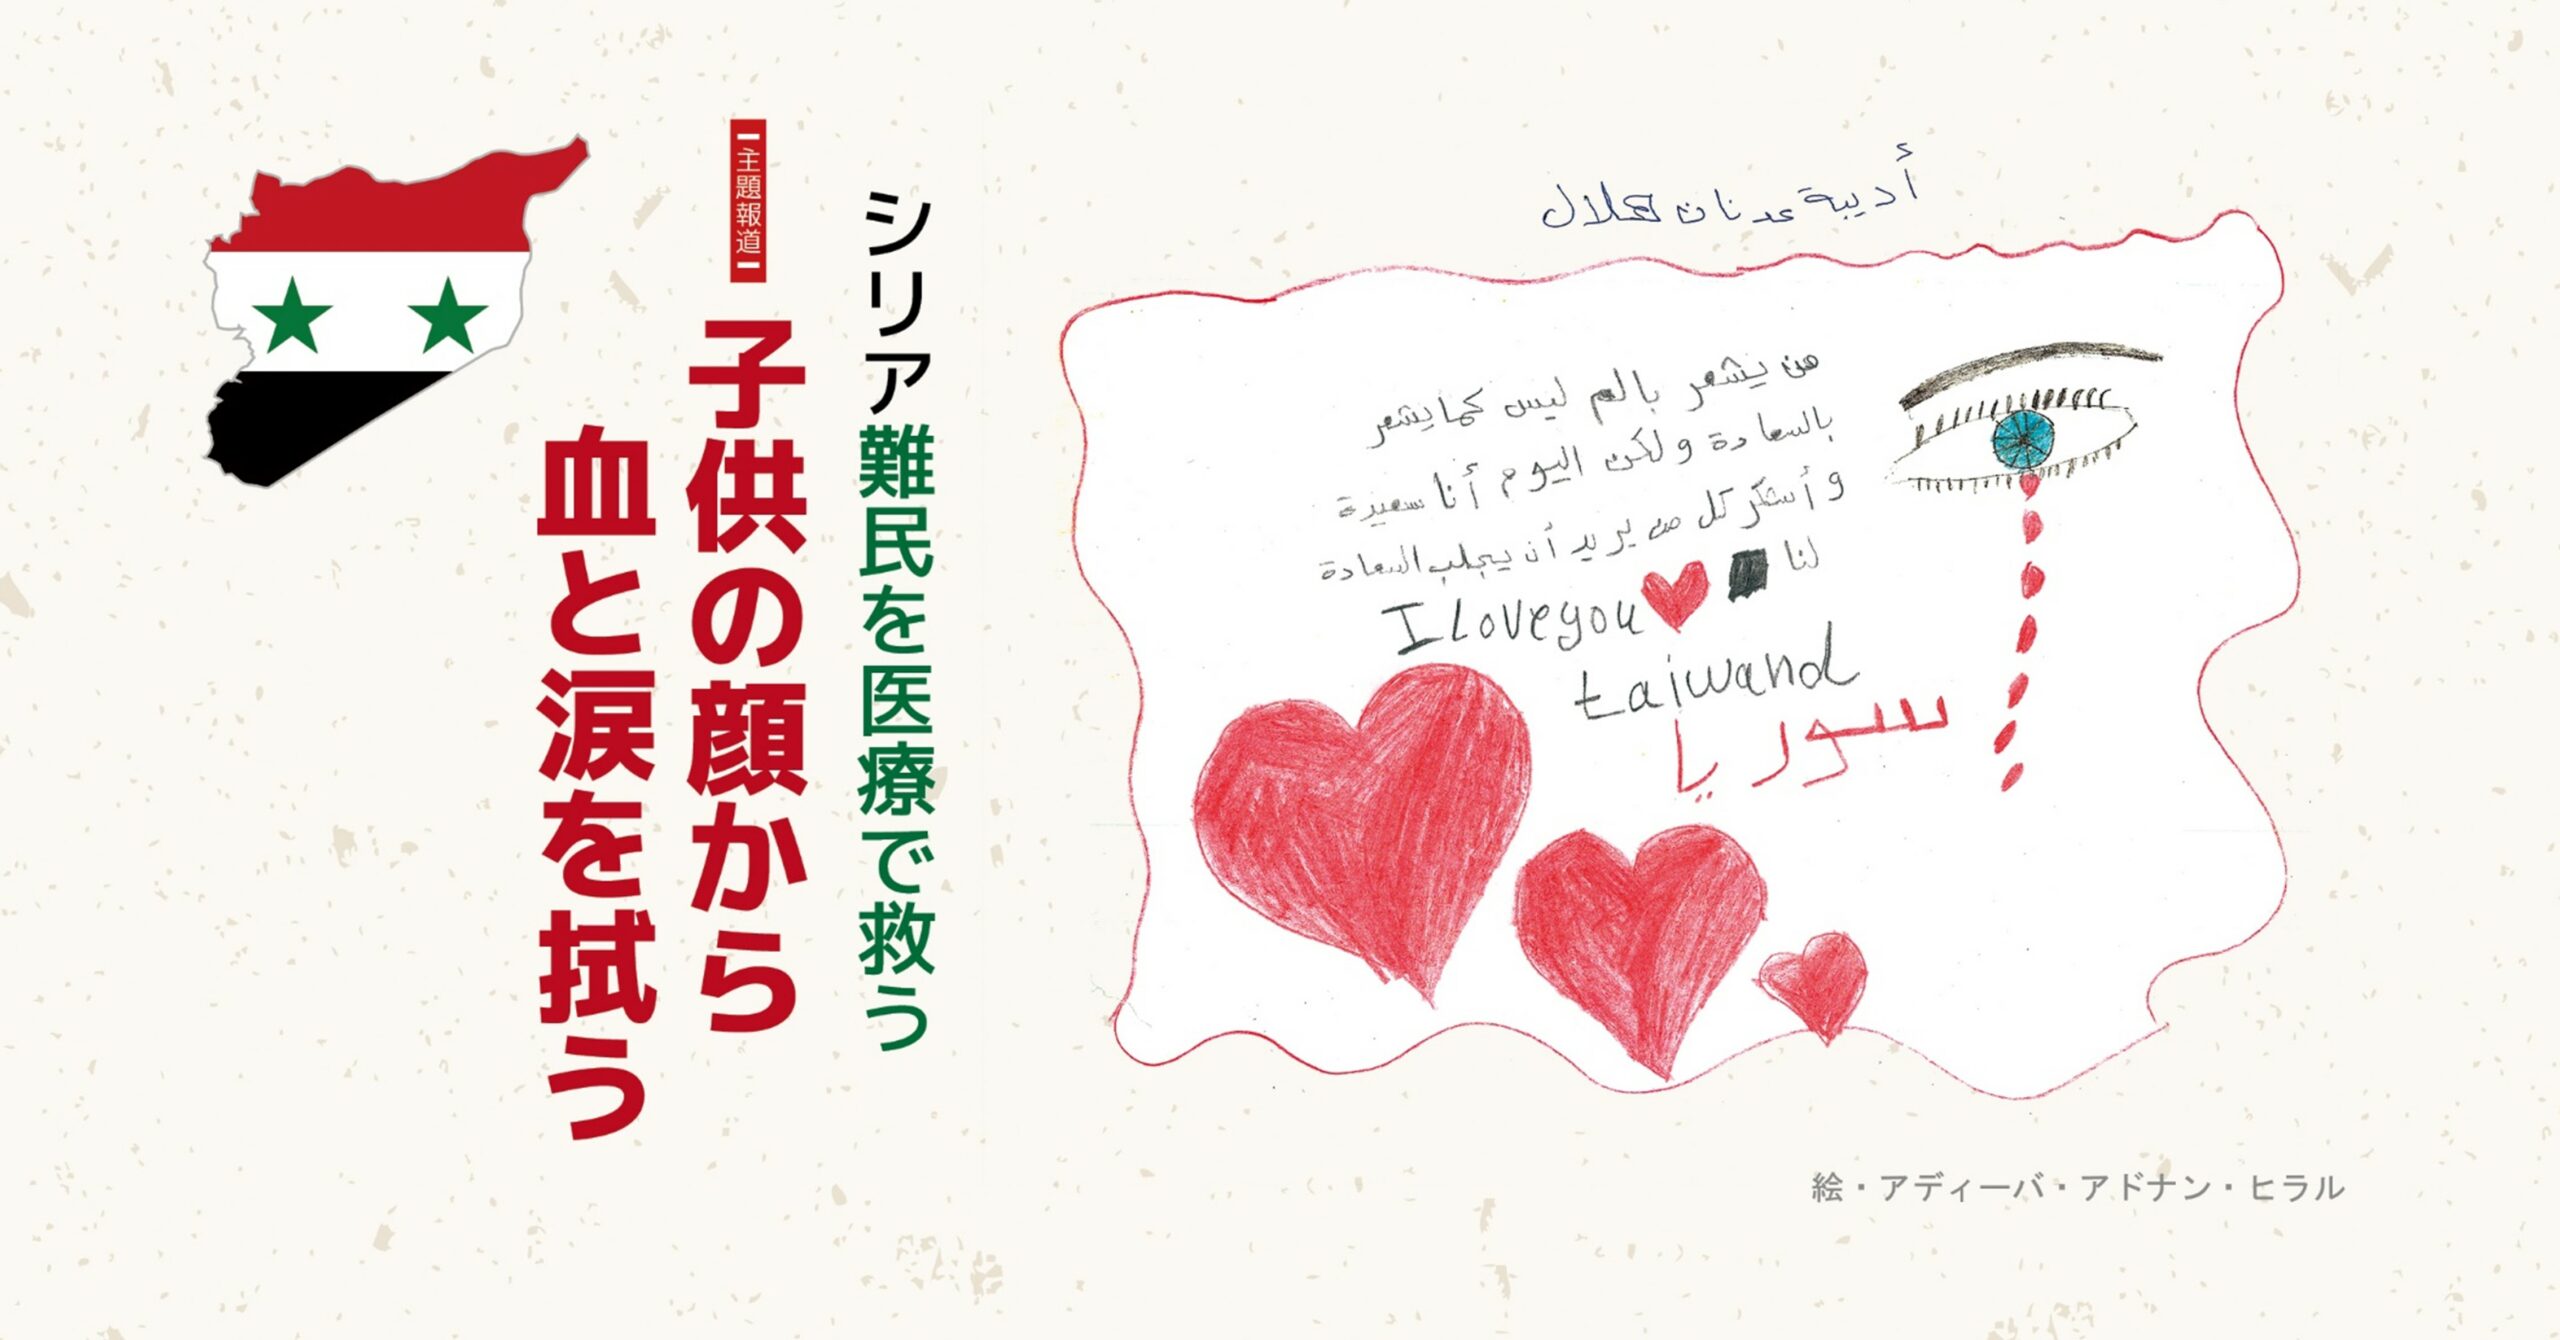 シリア難民を医療で救う
【主題報道】
子供の顔から
血と涙を拭う
أديبة عدنان هلال
من يشعر بالم ليس كما يشعر
بالسعادة ولكن اليوم أنا سعيدة
وأشكر كل من يريد أن يجلب السعادة
لنا
I love you
taiwand
سوريا
絵・アディーバ・アドナン・ヒラル